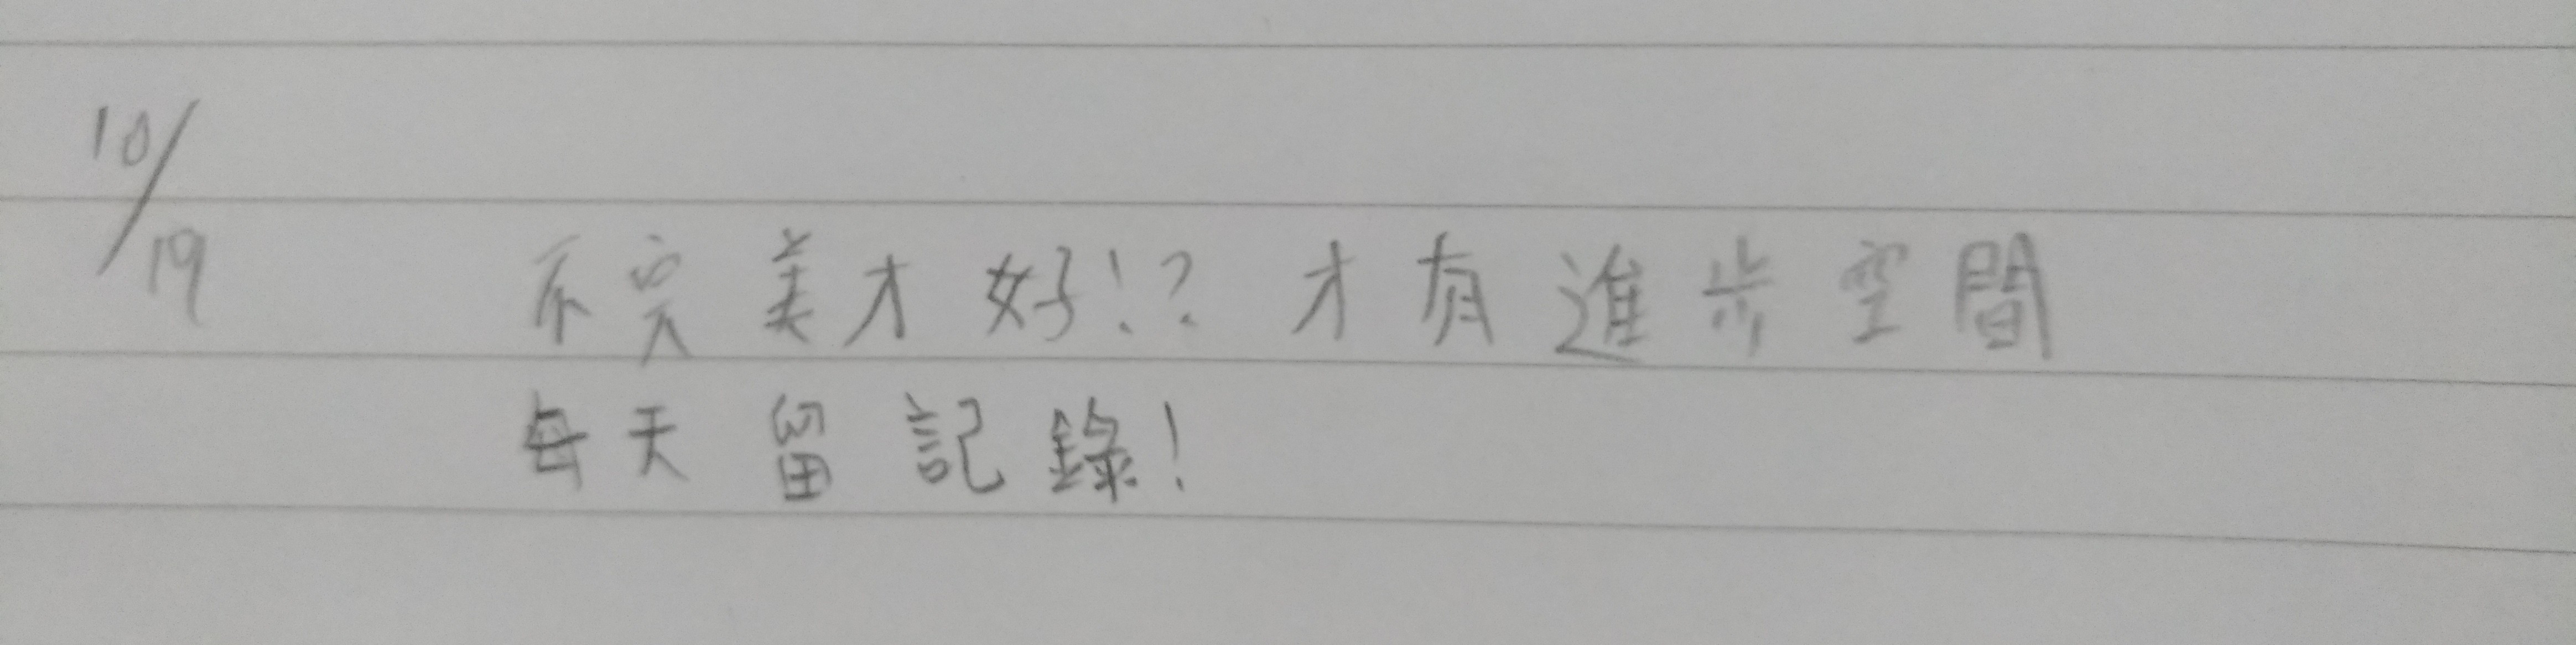 10/19
不完美才好!? 才有進步空間
每天留記錄!